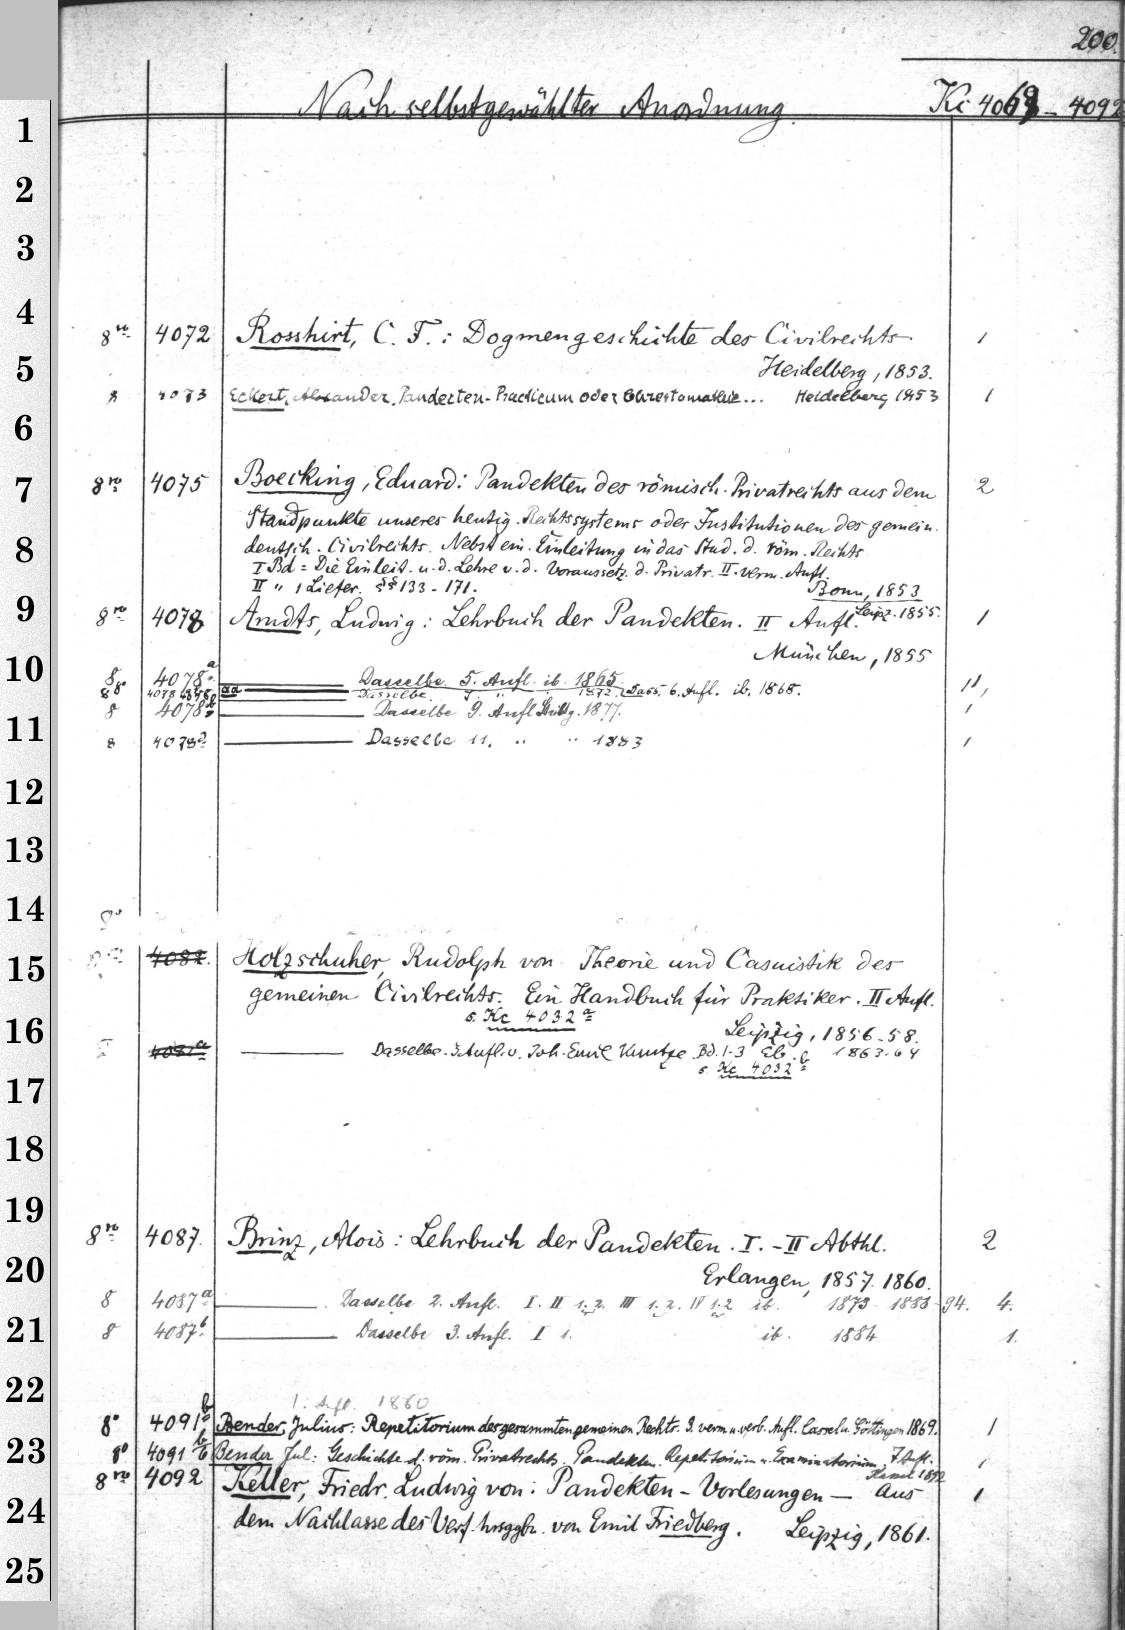 200.
Nach selbstgewählter Anordnung. Kc 4069 - 4092
1
2
3
4
8ro 4072 Rosshirt, C. F.: Dogmengeschichte des Civilrechts. 1
5
Heidelberg, 1853.
8 4073 Eckert, Alexander. Pandecten-Practicum oder Chrestomathie... Heidelberg 1853 1
6
7
8ro 4075 Boecking, Eduard: Pandekten des römisch. Privatrechts aus dem 2
Standpunkte unseres heutig. Rechtssystems oder Institutionen des gemein.
8
deutsch. Civilrechts. Nebst ein. Einleitung in das Stud. d. röm. Rechts
I Bd = Die Einleit. u. d. Lehre v. d. Voraussetz. d. Privatr. II. verm. Aufl.
II " 1 Liefer. §§ 133-171. Bonn, 1853
Leipz. 1855.
9
8ro 4078 Arndts, Ludwig: Lehrbuch der Pandekten. II Aufl. 1
München, 1855
10
8 4078a Dasselbe 5. Aufl. ib. 1865
8° 4078 aa Dasselbe 7. " 1872. Dass. 6. Aufl. ib. 1868.
8 4078 Dasselbe 9. Aufl Stuttg. 1877. 1
11
8 4078d Dasselbe 11. " " 1883 1
12
13
14
8°
15
4082. Holzschuher, Rudolph von Theorie und Casuistik des
gemeinen Civilrechts. Ein Handbuch für Praktiker. II Aufl.
s. Kc 4032a
16
Leipzig, 1856-58.
4082a Dasselbe. 3 Aufl. v. Joh. Emil Kuntze Bd. 1-3 Eb. 1863-64
s Kc 4032b
17
18
19
8ro 4087. Brinz, Alois: Lehrbuch der Pandekten. I.-II Abthl. 2
20
Erlangen, 1857. 1860.
8 4087a Dasselbe 2. Aufl. I. II 1.2. III 1.2. IV 1.2 ib. 1873 1888-94. 4.
21
8 4087b Dasselbe 3. Aufl. I 1. ib. 1884 1.
22
1. Aufl. 1860
8° 4091b Bender, Julius: Repetitorium des gesammten gemeinen Rechts. 3. verm. u. verb. Aufl. Cassel u. Göttingen 1869. 1
23
8° 4091 b Bender Jul: Geschichte d. röm. Privatrechts. Pandekten. Repetitorium u. Examinatorium, 7 Aufl. 1
Kassel 1892
8ro 4092 Keller, Friedr. Ludwig von: Pandekten-Vorlesungen — Aus 1
24
dem Nachlasse des Verf. hrsggbn. von Emil Friedberg. Leipzig, 1861.
25